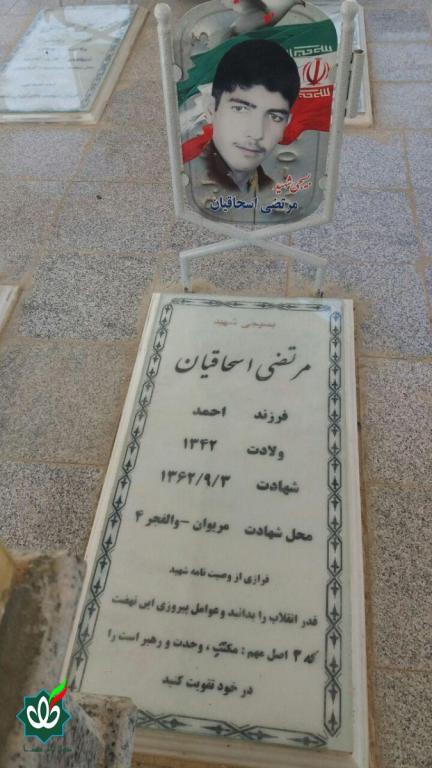 بسیجی شهید
مرتضی اسحاقیان
بسیجی شهید
مرتضی اسحاقیان
فرزند احمد
ولادت ۱۳۴۲
شهادت ۱۳۶۲/۹/۳
محل شهادت مریوان - والفجر ۴
فرازی از وصیت نامه شهید
قدر انقلاب را بدانید وعوامل پیروزی این نهضت
که ۳ اصل مهم : مکتب ، وحدت و رهبر است را
در خود تقویت کنید